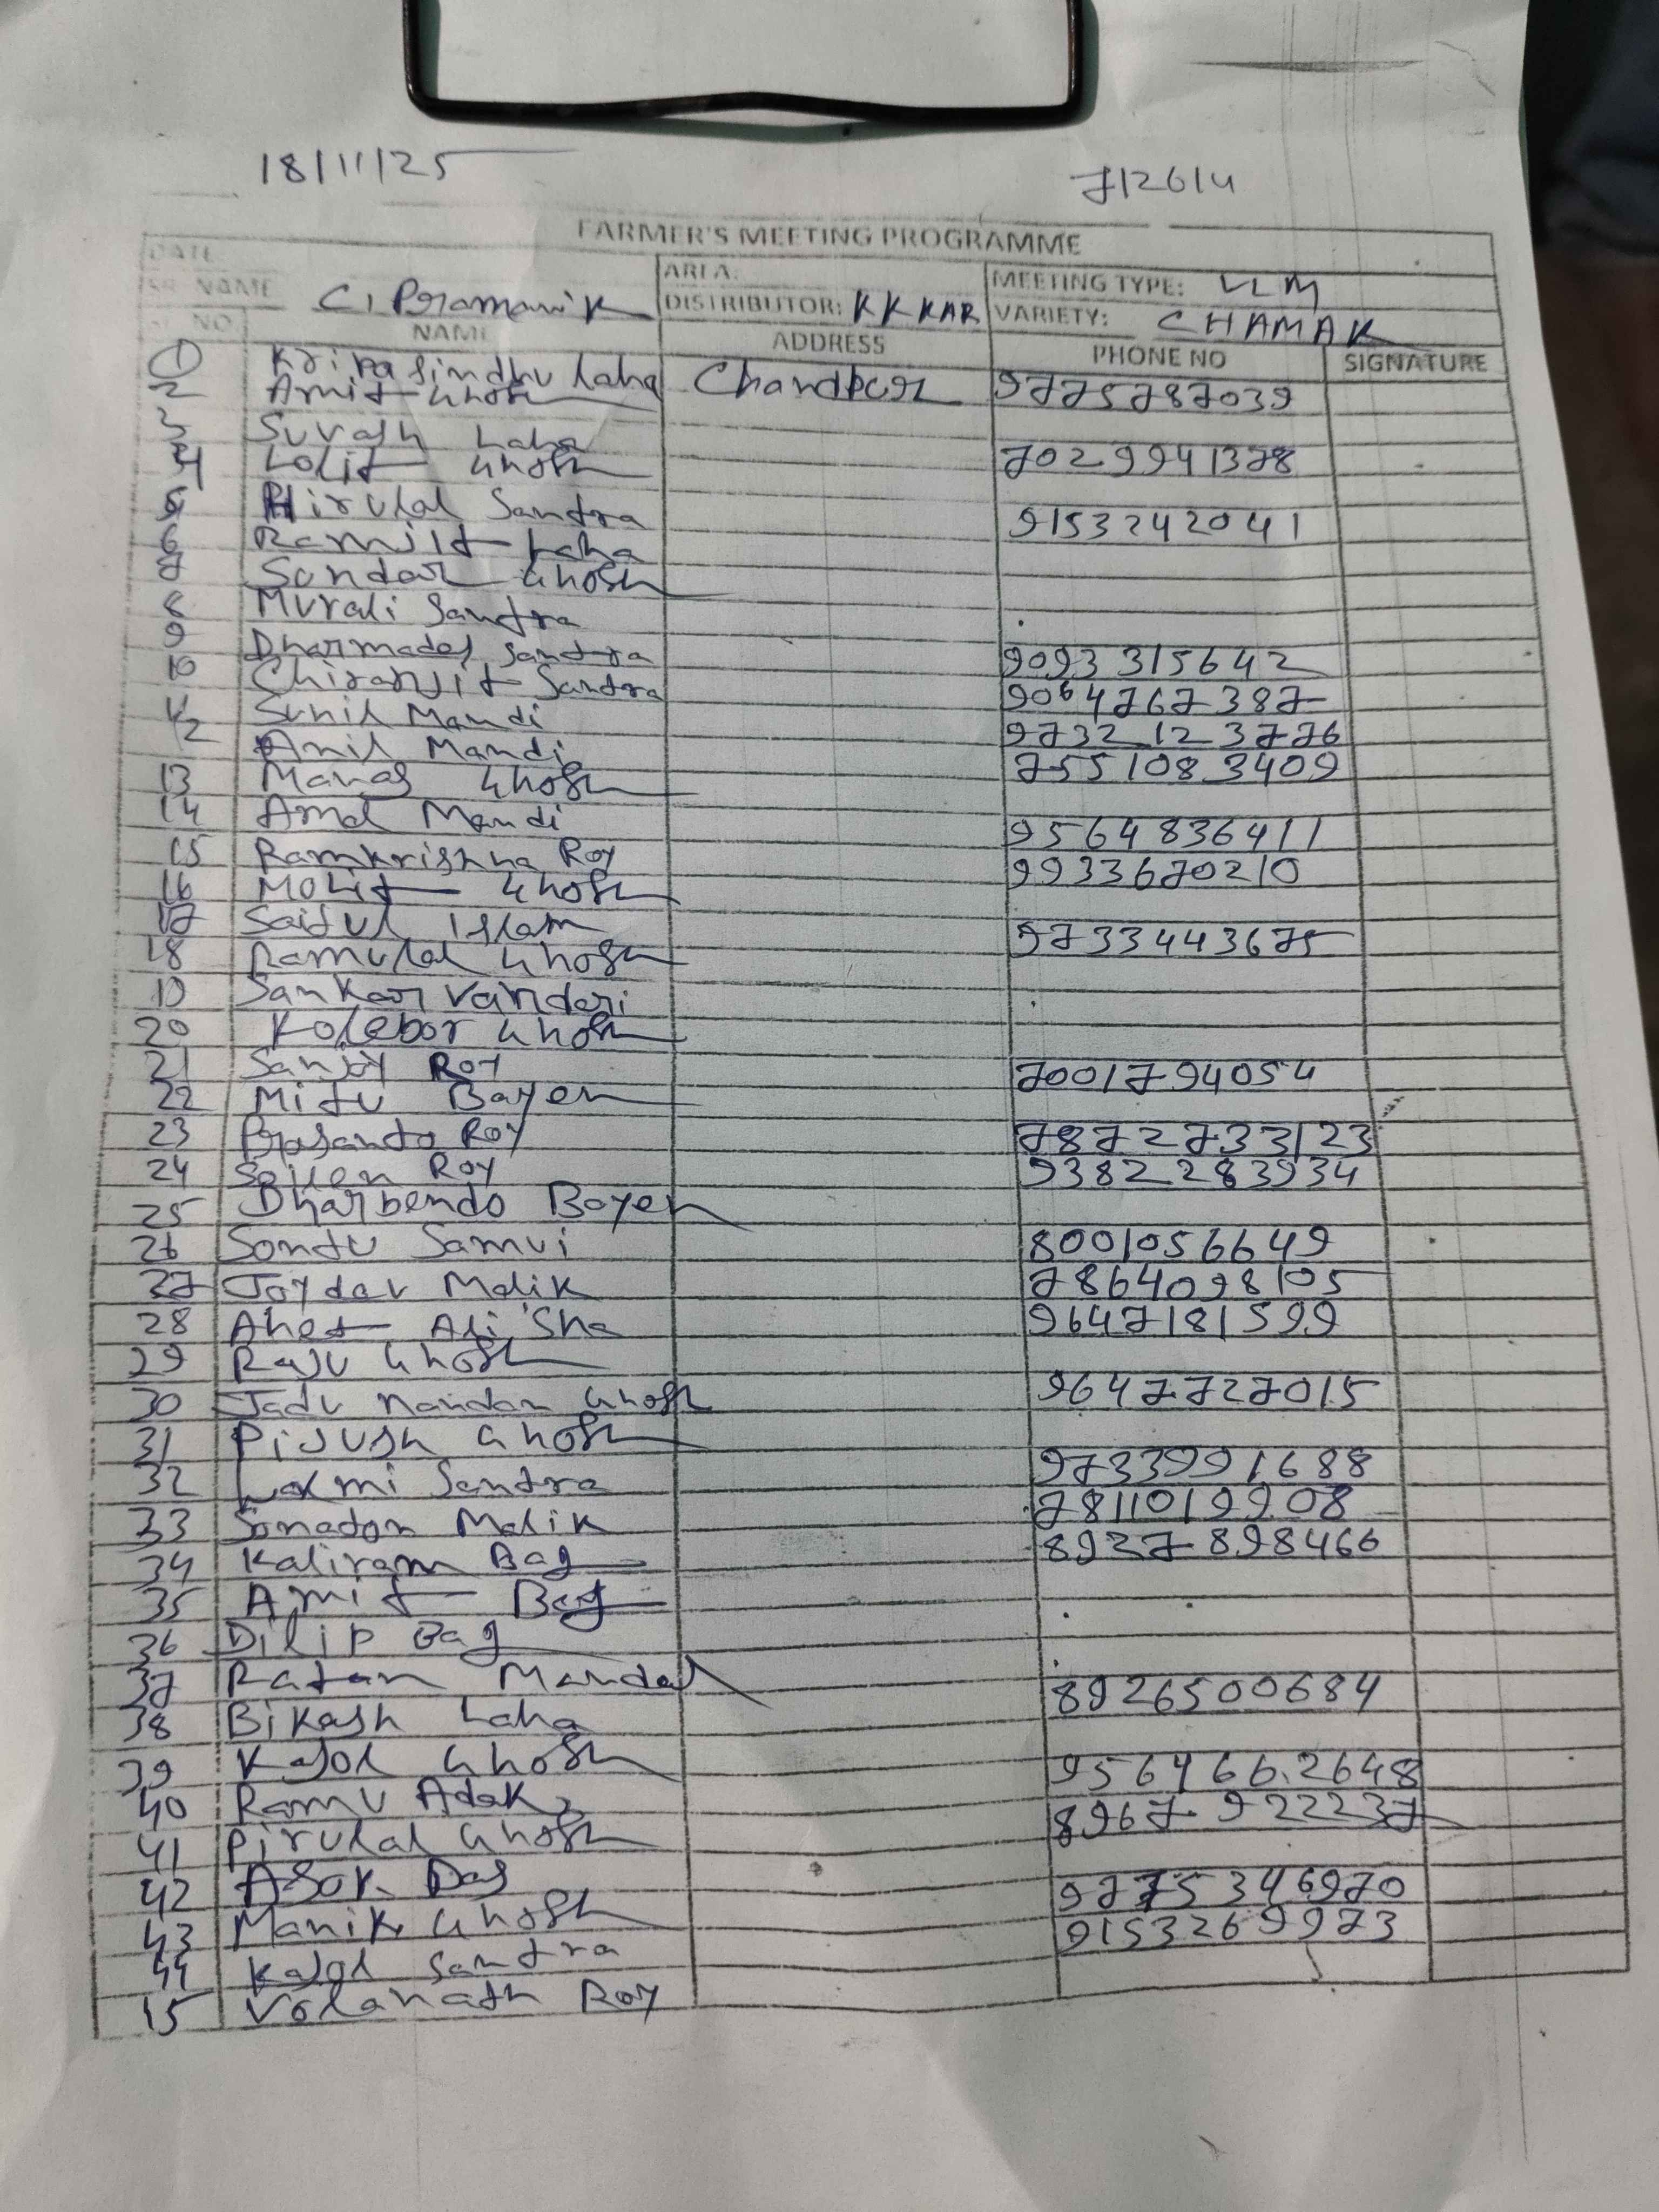 18/11/25 712614
FARMER'S MEETING PROGRAMME
DATE AREA: MEETING TYPE: VLM
SR. NAME C, Pramanik DISTRIBUTOR: KK KAR VARIETY: CHAMAK
NO NAME ADDRESS PHONE NO SIGNATURE
1 Kripasindhu Laha Chandpur 9775787039
2 Amit Ghosh
3 Suvash Laha 7029941378
4 Lolit Ghosh
5 Hirulal Santra 9153242041
6 Ramjit Laha
7 Sundar Ghosh
8 Murali Santra
9 Dharmadas Santra 9093315642
10 Chiranjit Santra 9064767387
11 Sunil Mandi 9732123776
12 Anil Mandi 7551083409
13 Manas Ghosh
14 Amal Mandi 9564836411
15 Ramkrishna Roy 9933670210
16 Mohit Ghosh
17 Saiful Islam 9733443675
18 Ramulal Ghosh
19 Sankar Vandari
20 Kolebor Ghosh
21 Sanjoy Roy 7001794054
22 Mitu Bayen
23 Prasanta Roy 7872733123
24 Sailen Roy 9382283934
25 Dharbendo Bayen
26 Sontu Samui 8001056649
27 Joydav Malik 7864098105
28 Ahet Ali Sha 9647181599
29 Raju Ghosh
30 Jadu Nandan Ghosh 9647727015
31 Pijush Ghosh
32 Laxmi Santra 9733991688
33 Sonadon Malik 7811019908
34 Kaliram Bag 8927898466
35 Amit Bag
36 Dilip Bag
37 Ratan Mandal 8926500684
38 Bikash Laha
39 Kajol Ghosh 9564662648
40 Ramu Adak 8967922237
41 Pirulal Ghosh
42 Asok Das 9775346970
43 Manik Ghosh 9153269973
44 Kajol Santra
15 Volanath Roy